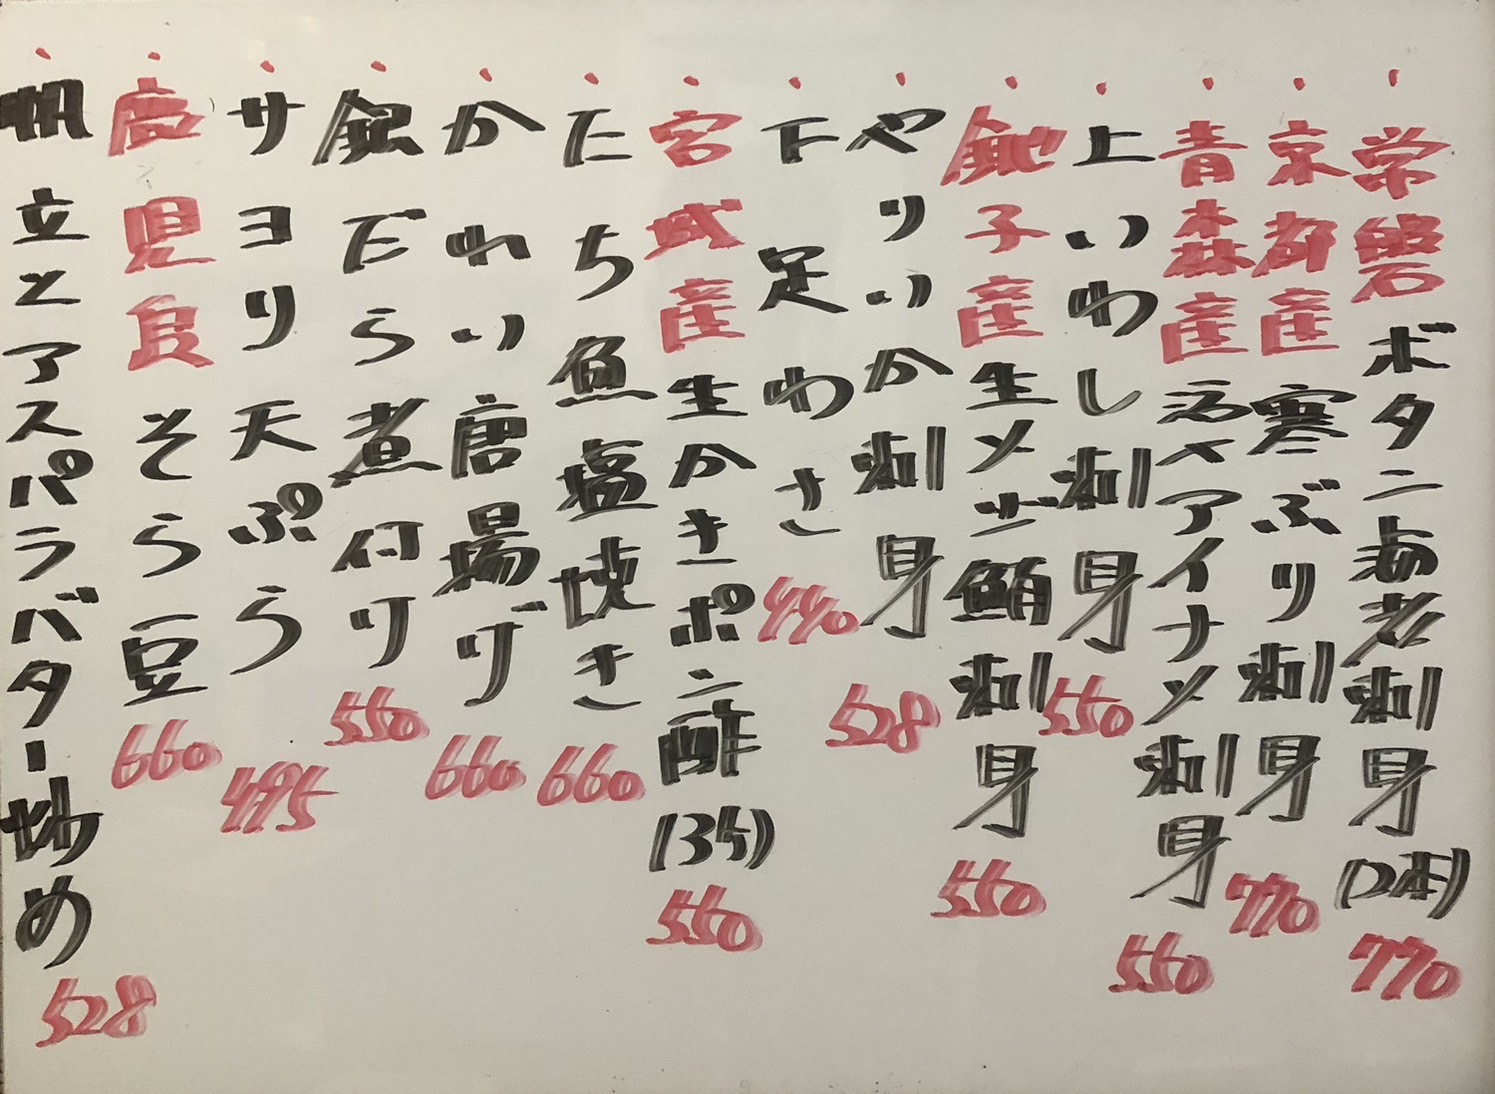 ・常磐ボタン海老刺身(2本) 770
・京都産寒ぶり刺身 770
・青森産活〆アイナメ刺身 550
・上いわし刺身 550
・銚子産生メジ鮪刺身 550
・やりいか刺身 528
・下足わさ 440
・宮城産生かきポン酢(3ケ) 550
・たち魚塩焼き 660
・かれい唐揚げ 660
・銀だら煮付け 550
・サヨリ天ぷら 495
・鹿児島そら豆 660
・帆立とアスパラバター炒め 528